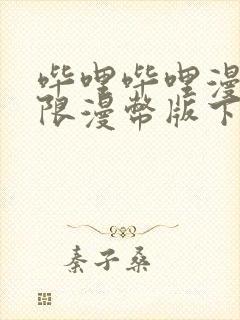 哔哩哔哩漫
限漫币版下
秦子桑